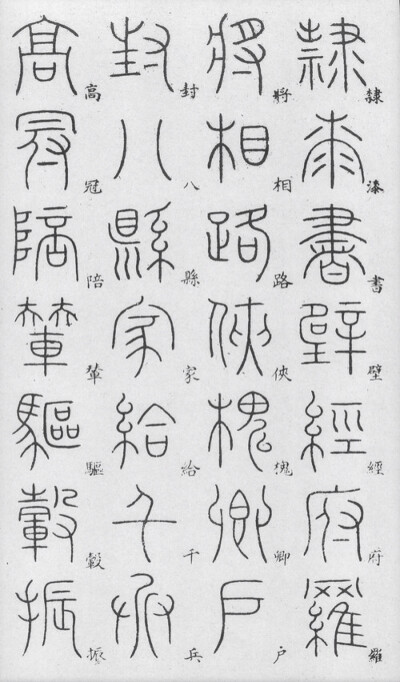 隸漆書壁經府羅
將相路俠槐卿戶
封八縣家給千兵
高冠陪輦驅轂振